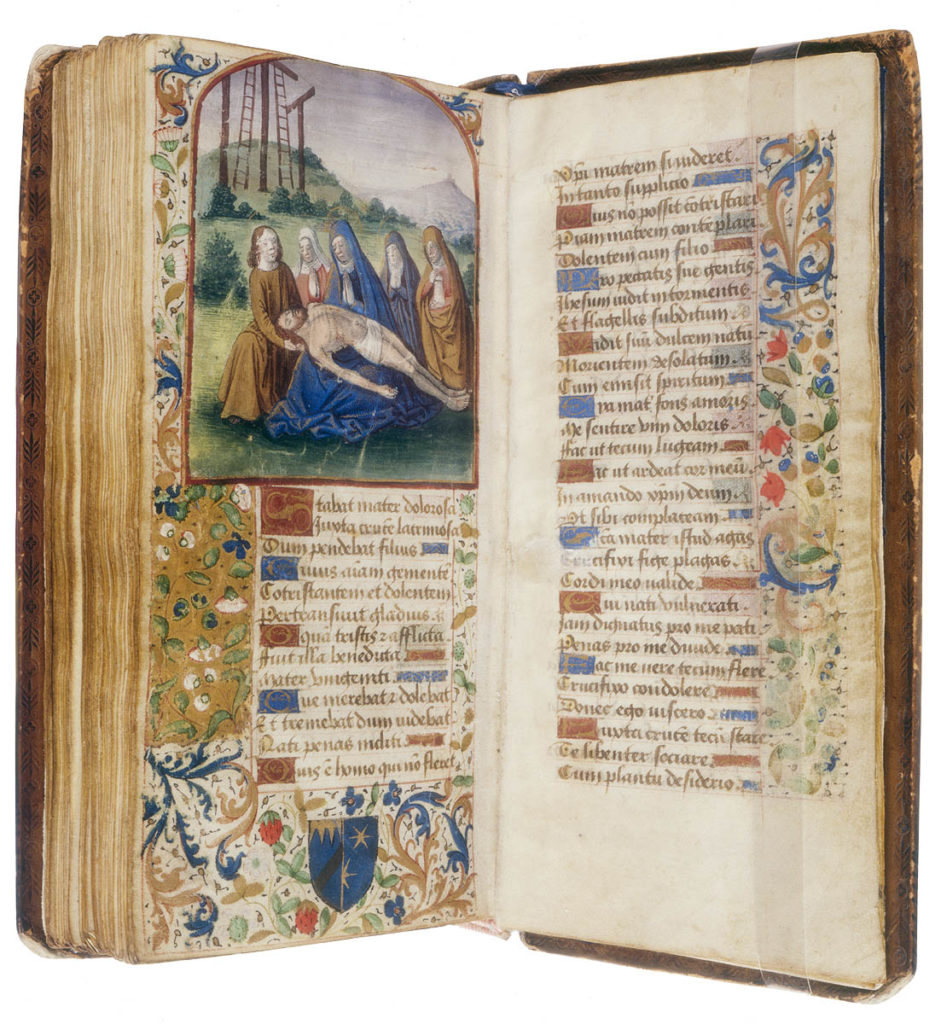 Stabat mater dolorosa
Iuxta crucē lacrimosa
Dum pendebat filius
Cuius aīam gemente
Cōtristantem et dolentem
Pertransiuit gladius
O quā tristis ⁊ afflicta
ffuit illa benedicta
Mater vnigeniti
Que merebat ⁊ dolebat
Et tremebat dum uidebat
Nati penas incliti
Quis ē homo qui nō fleret
Xp̄i matrem si uideret
In tanto supplicio
Quis nō possit cōtristari
Piam matrem contēplari
Dolentem cum filio
Pro peccatis sue gentis
Ihesum uidit in tormentis
Et flagellis subditum
Vidit suū dulcem natū
Morientem desolatum
Cum emisit spiritum
Eya mat̄ fons amoris
Me sentire vim doloris
ffac ut tecum lugeam
ffac ut ardeat cor meū
In amando xp̄m deum
Vt sibi complaceam
Sc̄a mater istud agas
Crucifixi fige plagas
Cordi meo valide
Tui nati vulnerati
Iam dignatus pro me pati
Penas pro me diuide
ffac me uere tecum flere
Crucifixo condolere
Donec ego uixero
Iuxta crucē tecū stare
Te libenter sociare
Cum planctu desiderio